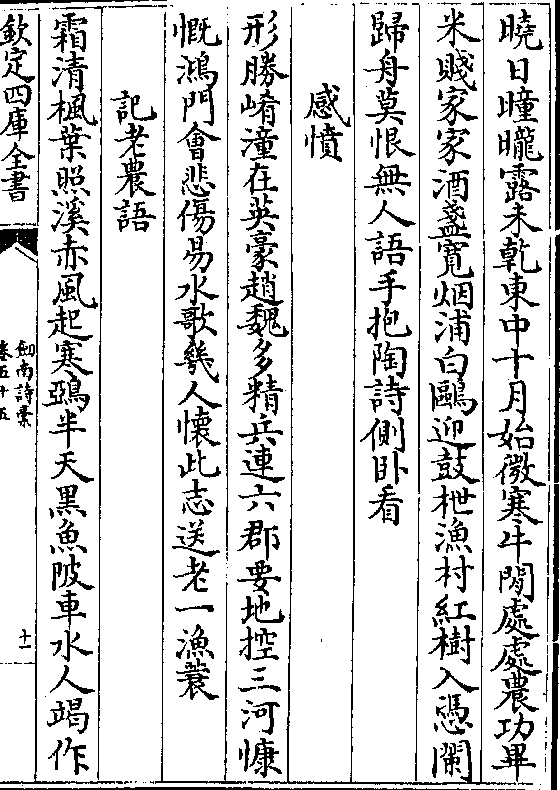 曉日曈曨露未乾東中十月始微寒牛閒處處農功畢
米賤家家酒盞寛烟浦白鷗迎鼓枻漁村紅樹入憑闌
歸舟莫恨無人語手抱陶詩側卧看
感憤
形勝崤潼在英豪趙魏多精兵連六郡要地控三河慷
慨鴻門會悲傷易水歌幾人懷此志送老一漁蓑
記老農語
霜清楓葉照溪赤風起寒鵶半天黑魚陂車水人竭作
欽定四庫全書
劒南詩稾
卷五十五
十一